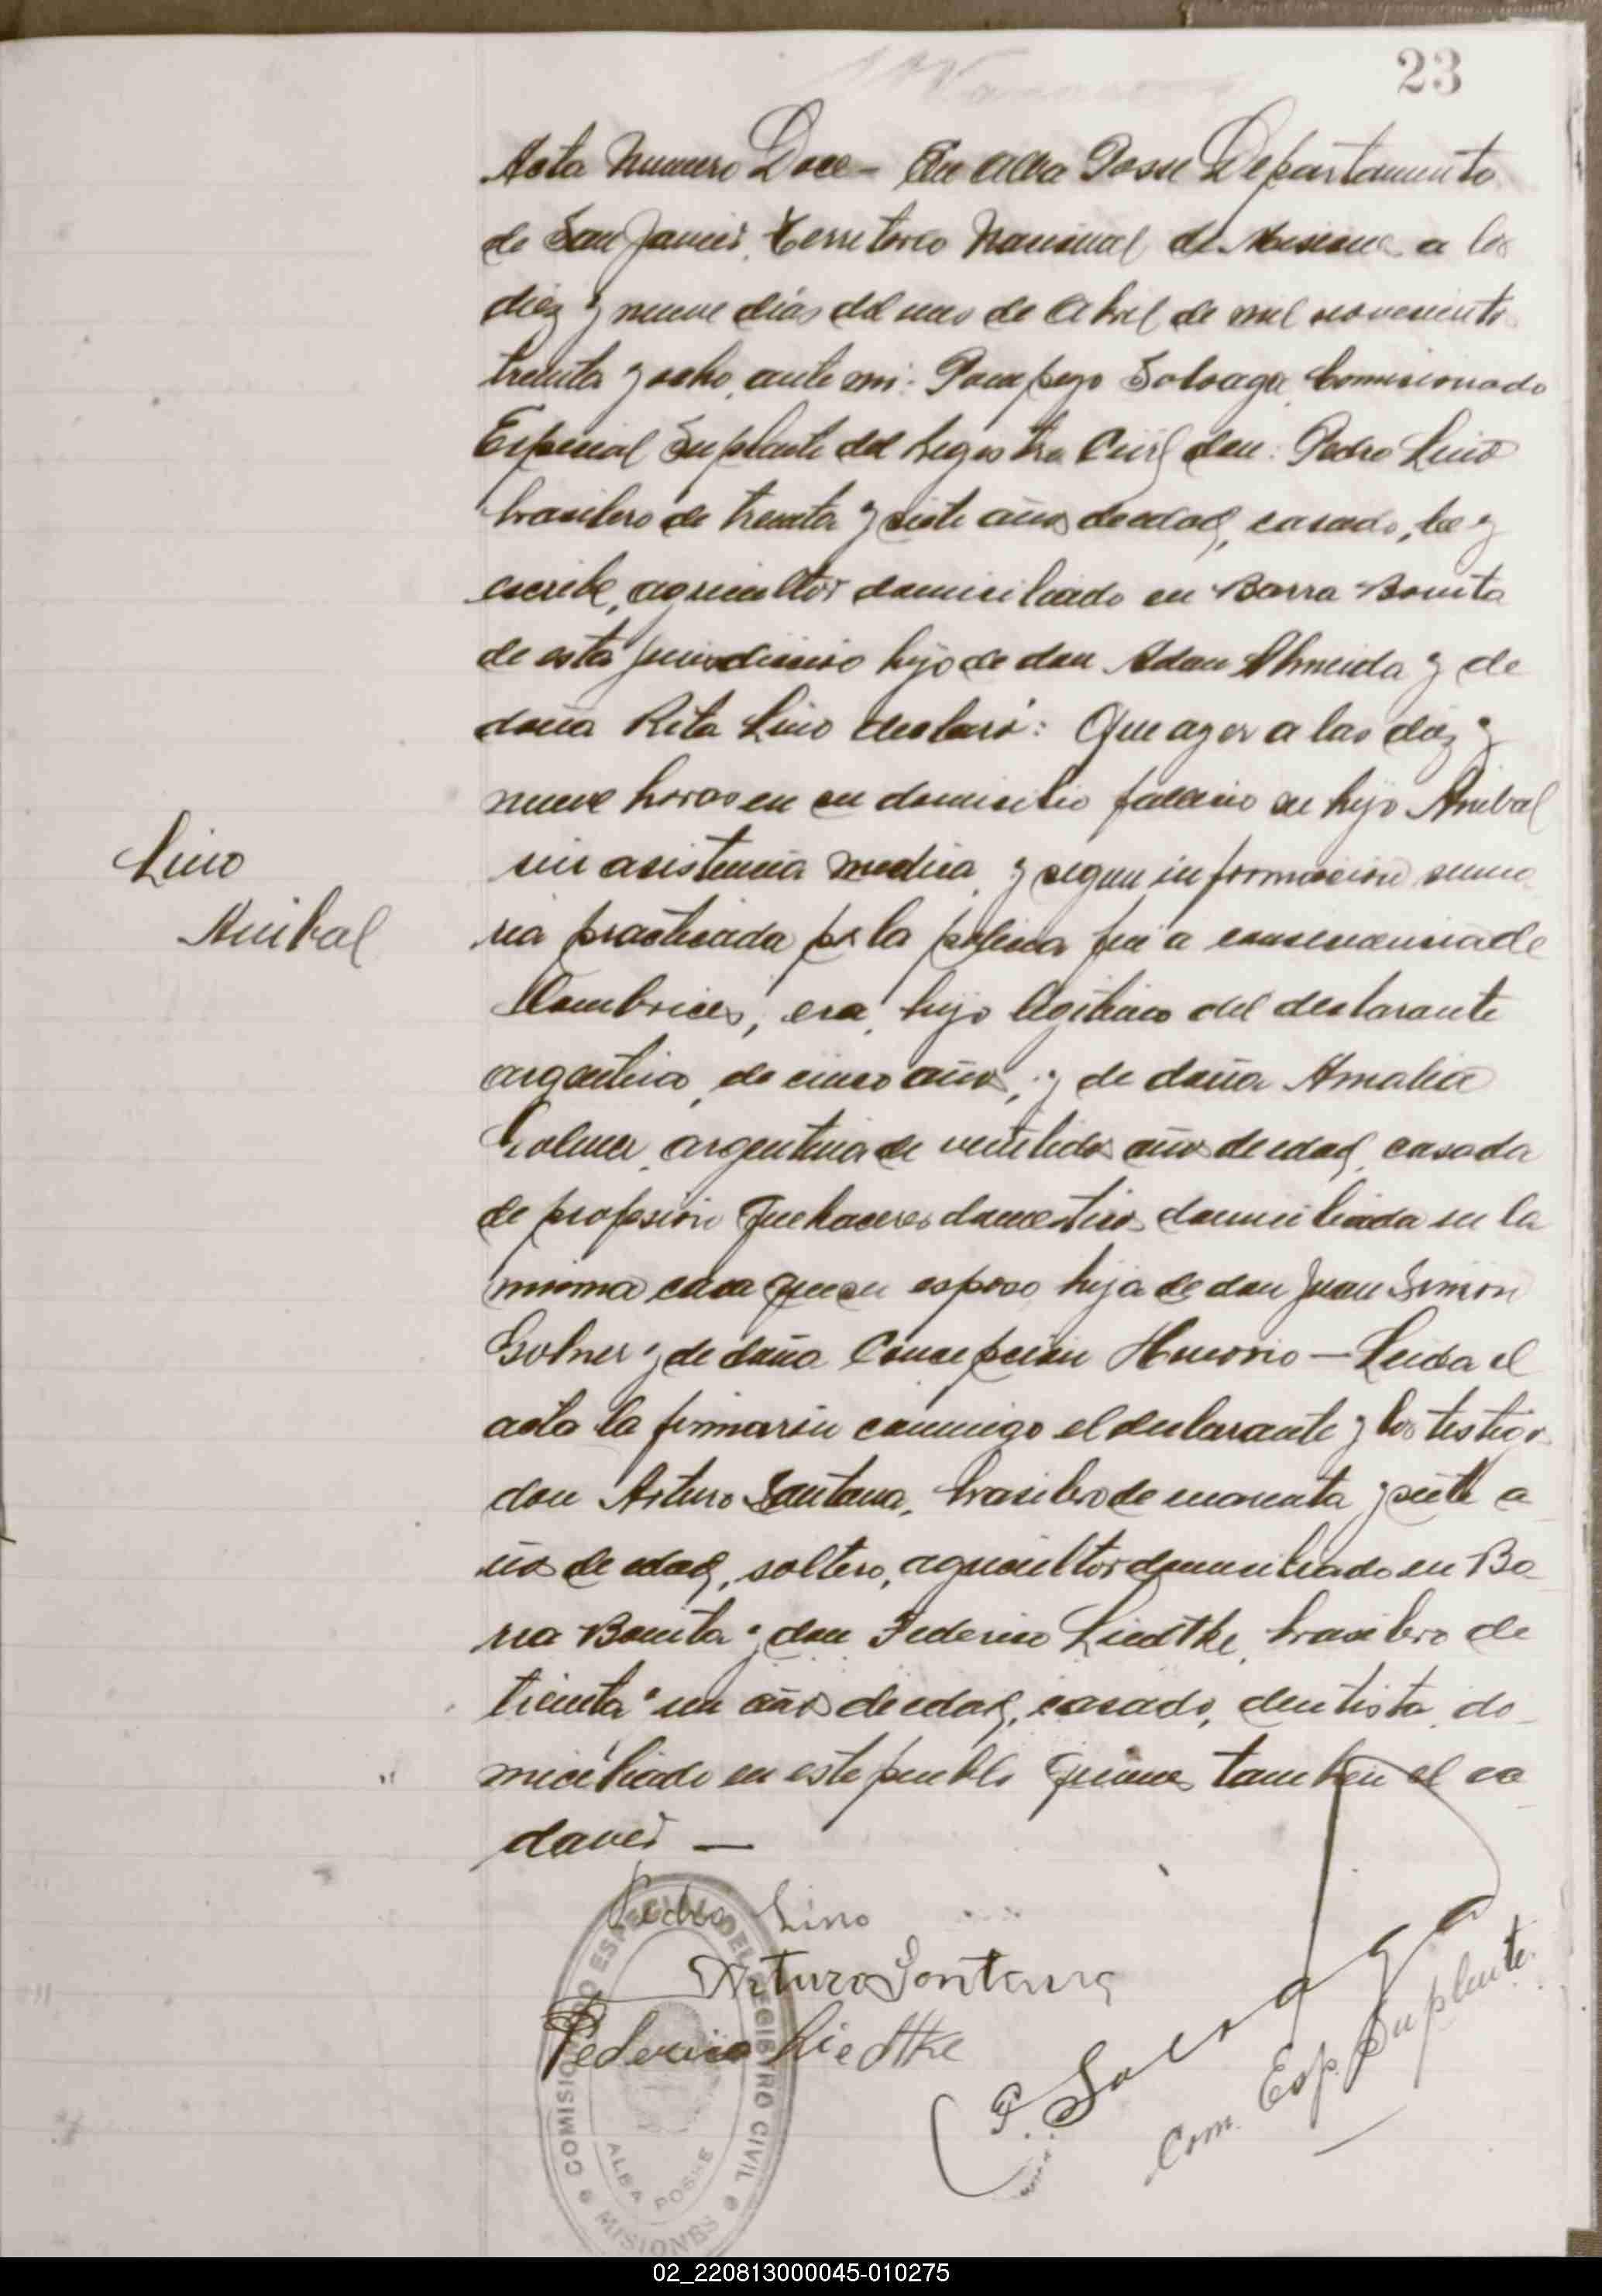 23
Acta Numero Doce - En Alba Posse Departamento
de San Javier, Territorio Nacional de Misiones a los
diez y nueve dias del mes de Abril de mil novecientos
treinta y ocho, ante mi: Pompeyo Solvaga, Comisionado
Especial Suplente del Registro Civil don: Pedro Lino
brasilero de treinta y siete años de edad, casado, lee y
escribe, agricultor domiciliado en Barra Bonita
de esta jurisdiccion hijo de don Adan Almeida y de
doña Rita Lino declaró: Que ayer a las diez y
nueve horas en su domicilio fallecio su hijo Anibal
Lino
Anibal
sin asistencia medica, y segun informacion suma
ria practicada por la policia fue a consecuencia de
lombrices, era, hijo legitimo del declarante
argentino, de cinco años, y de doña Amalia
Golner, argentina de veintidos años de edad, casada
de profesion quehaceres domesticos domiciliada en la
misma casa que su esposo hija de don Juan Simon
Golner y de doña Concepcion Honorio - Leida el
acta la firmaron conmigo el declarante y los testigos
don Arturo Santana, brasilero de cuarenta y siete a
ños de edad, soltero, agricultor domiciliado en Ba
rra Bonita y don Federico Liedtke, brasilero de
treinta un años de edad, casado, dentista, do
miciliado en este pueblo quienes tambien el ca
daver —
Pedro Lino
Arturo Santana
Federico Liedtke
P. Solvaga
Com. Esp. Suplente
COMISIONADO ESPECIAL DEL REGISTRO CIVIL
ALBA POSSE
MISIONES
02_220813000045-010275